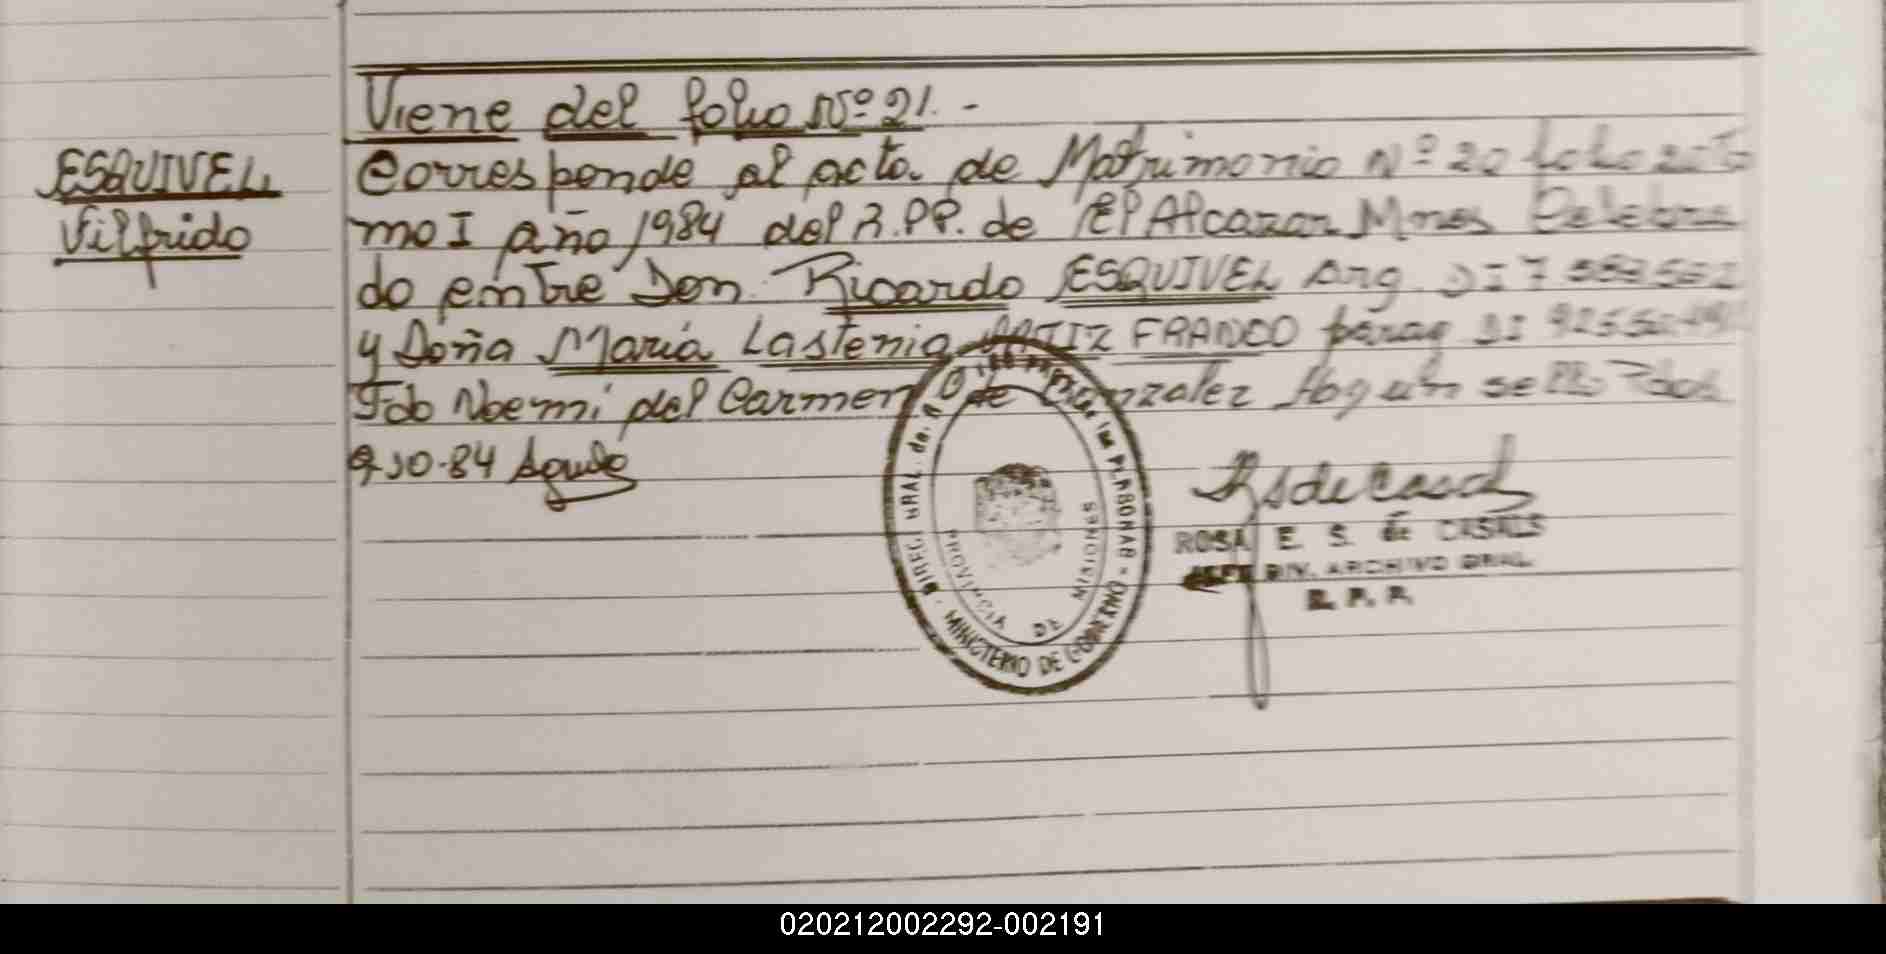 Viene del folio Nº 21.-
ESQUIVEL
Vilfrido
Corresponde al acta de Matrimonio Nº 20 folio 20 To
mo I año 1984 del R.P.P. de El Alcazar Mnes Celebra
do entre Don Ricardo ESQUIVEL Arg. DI 7
y Doña María Lastenia ORTIZ FRANCO parag DI
Fdo Noemi del Carmen O de Gonzalez Hay un sello
9-10-84
DIREC. GRAL. de PERSONAS - MINISTERIO DE GOBIERNO
PROVINCIA DE MISIONES
ROSA E. S. de CASALS
JEFE DIV. ARCHIVO GRAL
R. P. P.
020212002292-002191